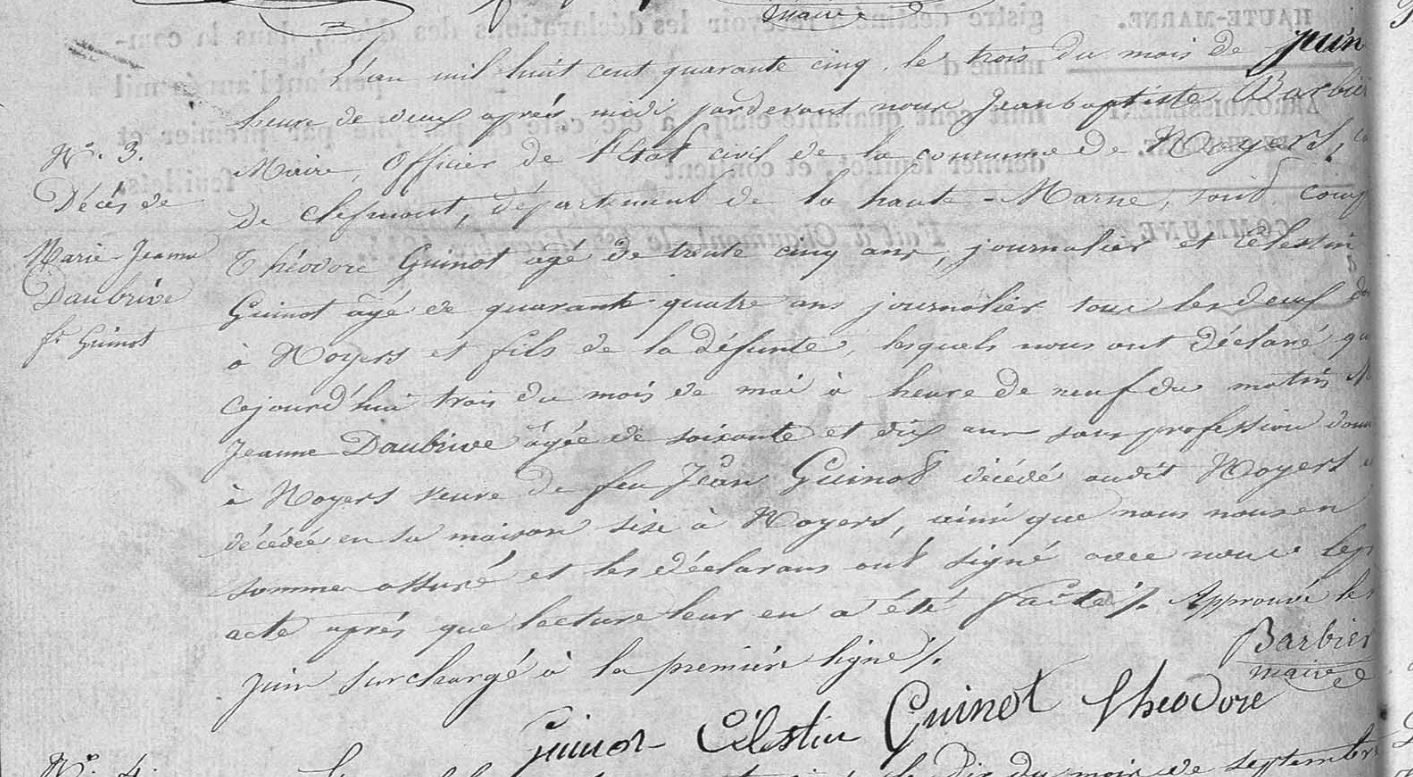 maire
L'an mil huit cent quarante cinq, le trois du mois de juin
heure de deux après midi pardevant nous Jeanbaptiste Barbier
N°. 3.
Maire, Officier de l'Etat civil de la commune de Noyers,
Décès de
de Clefmont, département de la haute-Marne, sont comp
Marie-Jeanne
Théodore Guinot agé de trente cinq ans, journalier et Célestin
Daubrive
Guinot âgé de quarante quatre ans journalier tous les deux
fe Guinot
à Noyers et fils de la défunte, lesquels nous ont déclaré que
cejourd'hui trois du mois de mai à heure de neuf du matin
Jeanne Daubrive âgée de soixante et dix ans sans profession dom
à Noyers veuve de feu Jean Guinot décédé audit Noyers
décédée en sa maison sise à Noyers, ainsi que nous nous en
somme assuré et les déclarans ont signé avec nous le p
acte après que lecture leur en a été faite ./. Approuvé le
juin surchargé à la première ligne ./.
Barbier
maire
Guinot Célestin Guinot Théodore
N°. 4.
le Dix du mois de septembre
HAUTE-MARNE.
ARRONDISSEMENT
COMMUNE